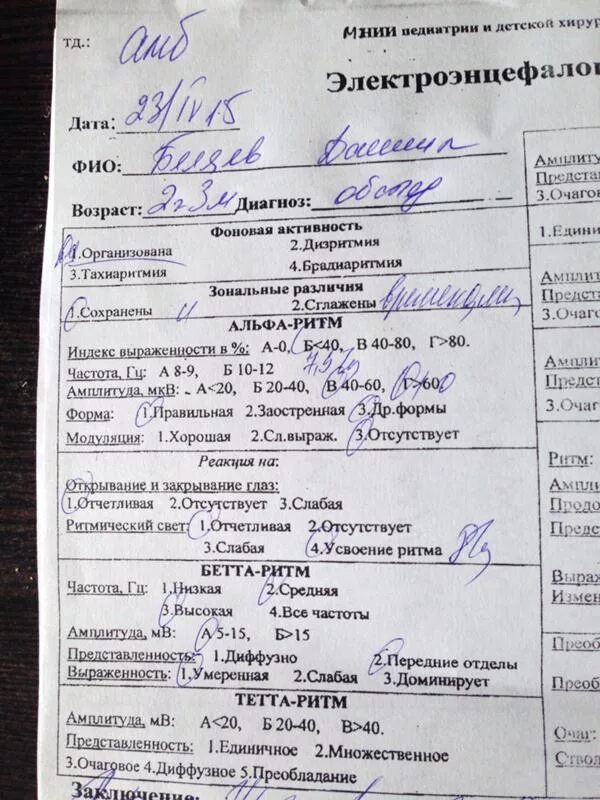 МНИИ педиатрии и детской хирур
тд.: амб
Электроэнцефало
Дата: 23/IV 15
ФИО:
Возраст: 2г 3м Диагноз:
Фоновая активность
1.Организована 2.Дизритмия
3.Тахиаритмия 4.Брадиаритмия
Зональные различия
1.Сохранены и 2.Сглажены временами
АЛЬФА-РИТМ
Индекс выраженности в %: А-0, Б<40, В 40-80, Г>80.
Частота, Гц: А 8-9, Б 10-12
Амплитуда, мкВ: А<20, Б 20-40, В 40-60, Г>60
Форма: 1.Правильная 2.Заостренная 3.Др.формы
Модуляция: 1.Хорошая 2.Сл.выраж. 3.Отсутствует
Реакция на:
Открывание и закрывание глаз:
1.Отчетливая 2.Отсутствует 3.Слабая
Ритмический свет: 1.Отчетливая 2.Отсутствует
3.Слабая 4.Усвоение ритма
БЕТТА-РИТМ
Частота, Гц: 1.Низкая 2.Средняя
3.Высокая 4.Все частоты
Амплитуда, мВ: А 5-15, Б>15
Представленность: 1.Диффузно 2.Передние отделы
Выраженность: 1.Умеренная 2.Слабая 3.Доминирует
ТЕТТА-РИТМ
Амплитуда, мВ: А<20, Б 20-40, В>40.
Представленность: 1.Единичное 2.Множественное
3.Очаговое 4.Диффузное 5.Преобладание
Заключение:
Амплиту
Представ
3.Очагов
1.Едини
Амплиту
Представ
3.Очаго
Амплит
Предст
3.Очаг
Ритм:
Ампли
Продо
Предс
Выраж
Измен
Преоб
Преоб
Очаг:
Ство